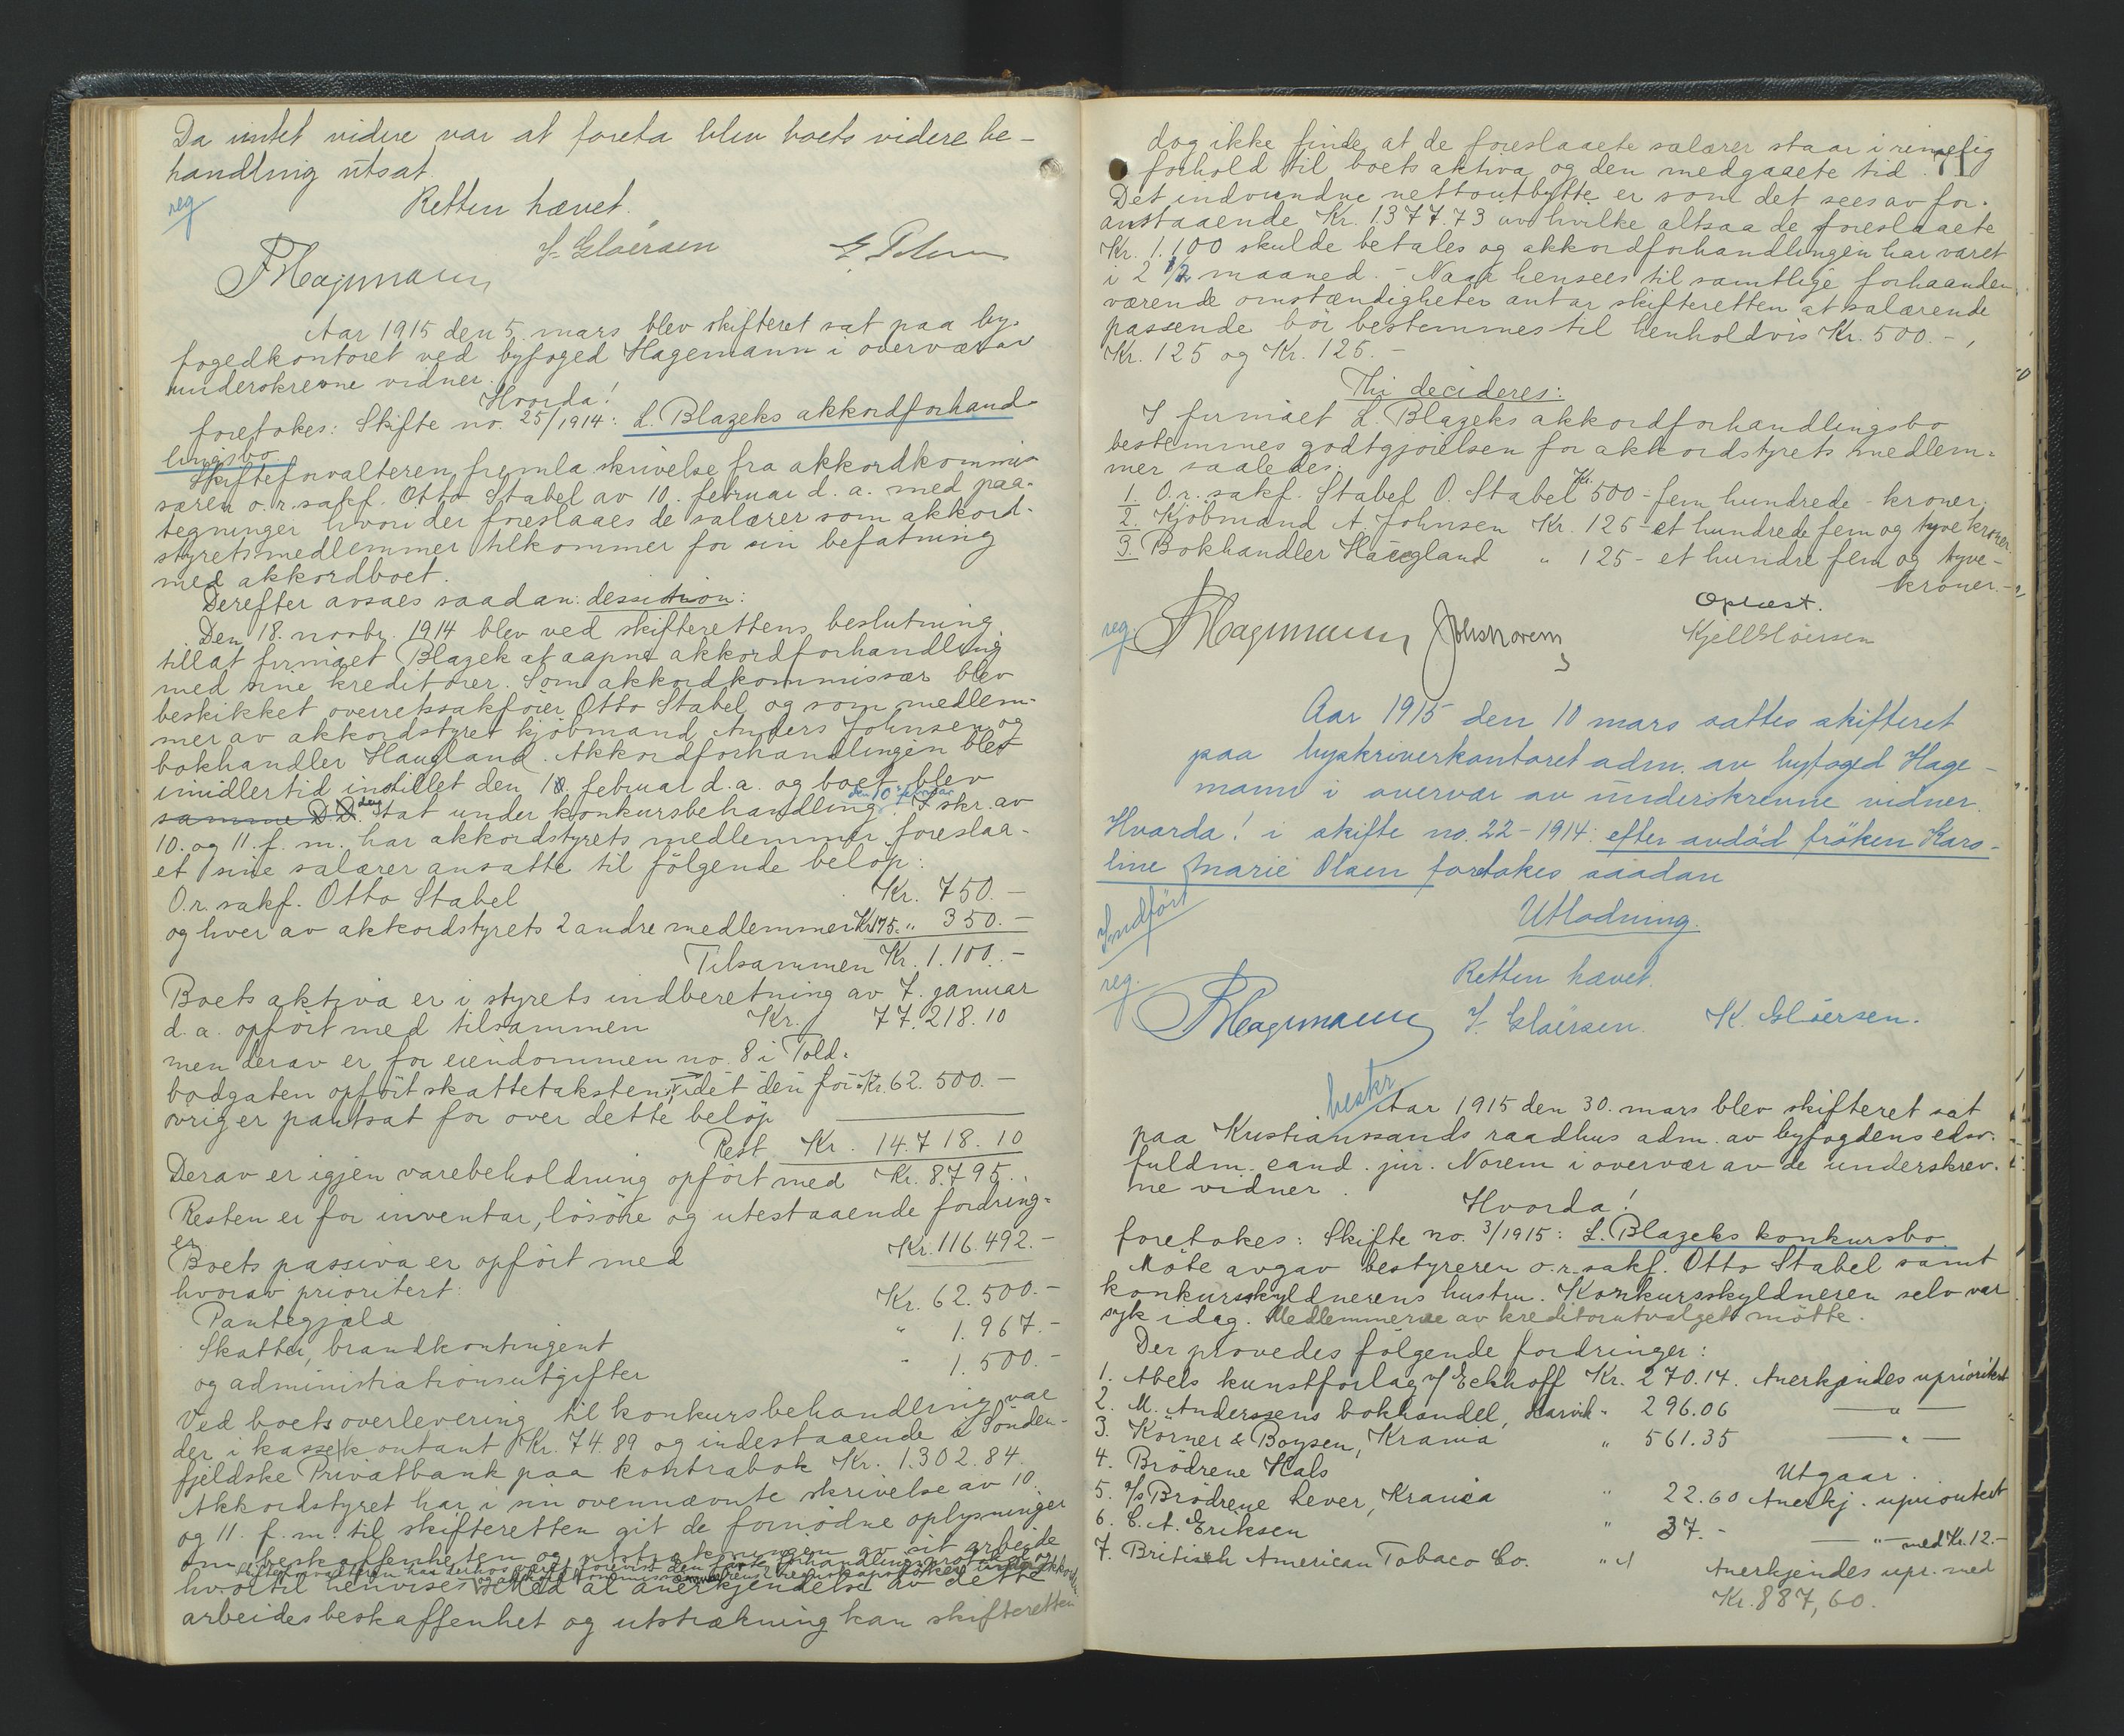 Da intet videre var at foreta blev boets videre be-
handling utsat.
reg
Retten hævet.
J. Gloersen
FHagemann
Aar 1915 den 5. mars blev skifteret sat paa by-
fogedkontoret ved byfoged Hagemann i overvær av
underskrevne vidner.
Hvorda!
foretokes: Skifte no. 25/1914: L. Blazeks akkordforhand-
lingsbo.
Skifteforvalteren fremla skrivelse fra akkordkommis-
særen o.r.sakf. Otto Stabel av 10. februar d. a. med paa-
tegninger hvori der foreslaaes de salærer som akkord-
styrets medlemmer tilkommer for sin befatning
med akkordboet.
Derefter avsaes saadan: dessision:
Den 18. novbr. 1914 blev ved skifterettens beslutning
tillat firmaet Blazek at aapne akkordforhandling
med sine kreditorer. Som akkordkommissær blev
beskikket overretssakfører Otto Stabel og som medlem-
mer av akkordstyret kjøbmand Anders Johnsen og
bokhandler Haugland. Akkordforhandlingen blev
imidlertid indstillet den 10. februar d.a. og boet blev
samme D.D. tat under konkursbehandling den 10 februar. I skr. av
10. og 11. f. m. har akkordstyrets medlemmer foreslaa-
et sine salærer ansatte til følgende beløp:
O.r. sakf. Otto Stabel Kr. 750.-
og hver av akkordstyrets 2 andre medlemmer Kr 175.- " 350.-
Tilsammen Kr. 1.100.-
Boets aktiva er i styrets indberetning av 7. januar
d. a. opført med tilsammen Kr. 77.218.10
men derav er for eiendommen no. 8 i Told-
bodgaten opført skattetaksten, idet den for- Kr. 62.500.-
øvrig er pantsat for over dette beløp
Rest Kr. 14.718.10
Derav er igjen varebeholdning opført med Kr. 8.795.-
Resten er for inventar, løsøre og utestaaende fordring-
er
Boets passiva er opført med Kr. 116.492.-
hvorav prioritert:
Pantegjæld Kr. 62.500.-
Skatter, brandkontingent " 1.967.-
og administrationsutgifter " 1.500.-
Ved boets overlevering til konkursbehandling var
der i kasse kontant Kr. 74.89 og indestaaende i Sönden-
fjeldske Privatbank paa kontrabok Kr. 1.302.84.
Akkordstyret har i sin ovennævnte skrivelse av 10.
og 11. f. m. til skifteretten git de fornødne oplysninger
om beskaffenheten og utstrækningen av sit arbeide
hvortil henvises. Med al anerkjendelse av dette
arbeides beskaffenhet og utstrækning kan skifteretten
dog ikke finde at de foreslaaete salærer staar i rimelig
forhold til boets aktiva og den medgaaete tid.
Det indvundne nettoutbytte er som det sees av for-
anstaaende Kr. 1377.73 av hvilke altsaa de foreslaaete
Kr. 1.100 skulde betales og akkordforhandlingen har varet
i 2 1/2 maaned. - Naar hensees til samtlige forhaanden-
værende omstændigheter antar skifteretten at salærende
passende bør bestemmes til henholdvis Kr. 500.-,
Kr. 125 og Kr. 125.-
Thi decideres:
I firmaet L. Blazeks akkordforhandlingsbo
bestemmes godtgjørelsen for akkordstyrets medlem-
mer saaledes:
1. O.r. sakf. Stabel O. Stabel Kr. 500 - fem hundrede - kroner.
2. Kjøbmand A. Johnsen Kr. 125 - et hundrede fem og tyve kroner.
3. Bokhandler Haugland " 125 - et hundre fem og tyve-
kroner.-
Oplæst.
reg. FHagemann Johs Norem Kjell Gloersen
Aar 1915 den 10 mars sattes skifteret
paa byskriverkontoret adm. av byfoged Hage-
mann i overvær av underskrevne vidner.
Hvorda! i skifte no. 22-1914: efter avdød frøken Karo-
line Marie Olsen foretokes saadan
Indført
Utlodning.
Retten hævet.
reg.
FHagemann J. Gloersen. K. Gloersen.
beskr
Aar 1915 den 30. mars blev skifteret sat
paa Kristianssands raadhus adm. av byfogdens edsv.
fuldm. cand. jur. Norem i overvær av de underskrev-
ne vidner.
Hvorda!
foretokes: Skifte no. 3/1915: L. Blazeks konkursbo.
Møte avgav bestyreren o.r.sakf. Otto Stabel samt
konkursskyldnerens hustru. Konkursskyldneren selv var
syk idag. Medlemmerne av kreditorutvalget møtte.
Der prøvedes følgende fordringer:
1. Abels kunstforlag v/ Eckhoff Kr. 270.14. Anerkjendes uprioritert
2. M. Anderssens bokhandel, Larvik " 296.06 — " —
3. Körner & Boysen, Krania " 561.35 — " —
4. Brødrene Hals Utgaar.
5. A/s Brødrene Lever, Krania " 22.60 Anerkj. uprioritert
6. C. A. Eriksen " 37.- — " — med Kr. 12.-
7. British American Tobaco Co. " Anerkjendes upr. med
Kr. 887,60.